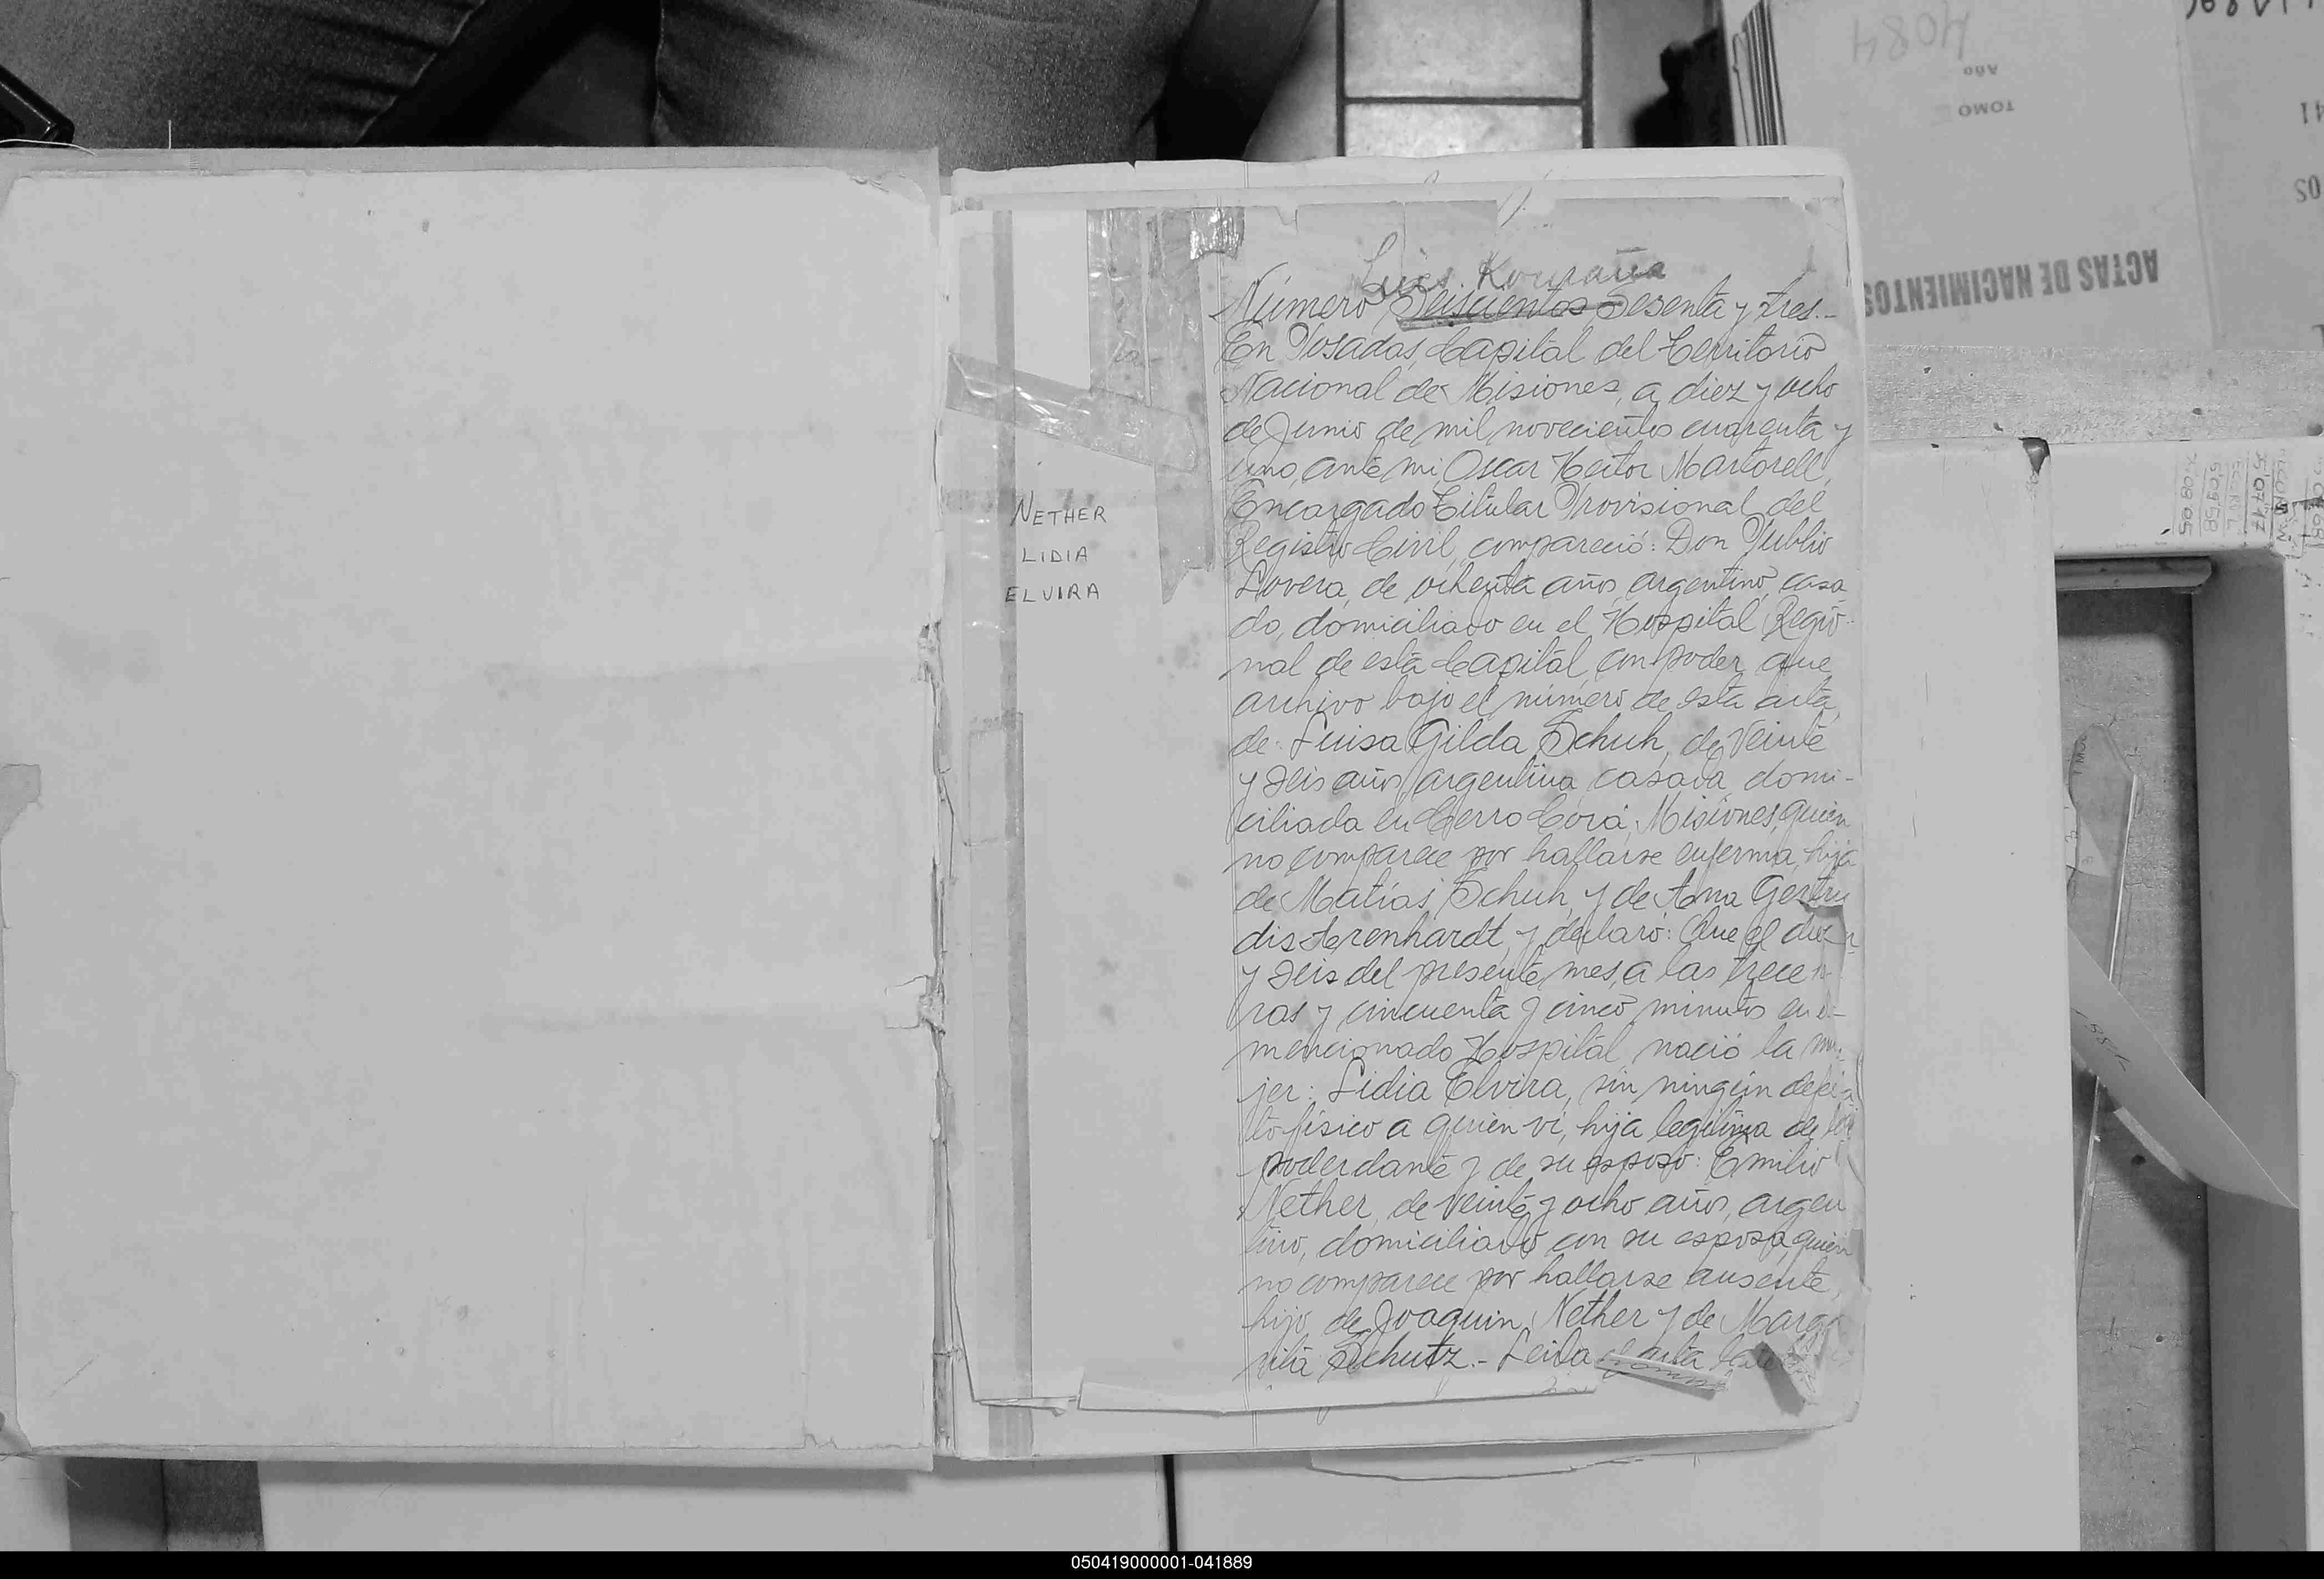 4084
Año
TOMO
ACTAS DE NACIMIENTOS
NETHER
LIDIA
ELVIRA
Luis
Número Seiscientos Sesenta y tres.-
En Posadas, Capital del Territorio
Nacional de Misiones, a diez y ocho
de Junio de mil novecientos cuarenta y
uno, ante mi, Oscar Hector Martorell,
Encargado Titular Provisional del
Registro Civil, compareció: Don Publio
Lovera, de ochenta años, argentino, casa
do, domiciliado en el Hospital Regio-
nal de esta Capital, con poder que
archivo bajo el número de esta acta,
de: Luisa Gilda Schuh, de veinte
y seis años, argentina, casada, domi-
ciliada en Cerro Corá, Misiones, quien
no comparece por hallarse enferma, hija
de Matías Schuh, y de Ana Gertru
dis Arenhardt, y declaró: Que el diez
y seis del presente mes, a las trece
ras y cincuenta y cinco minutos en el
mencionado Hospital, nació la mu-
jer: Lidia Elvira, sin ningún defec
to físico a quien ví, hija legítima de la
poderdante y de su esposo: Emilio
Nether, de veinte y ocho años, argen
tino, domiciliado con su esposa, quien
no comparece por hallarse ausente,
hijo de Joaquin Nether y de Marga
rita Schutz.- Leida el acta
050419000001-041889